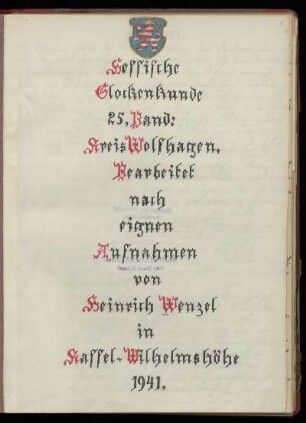 Hessische
Glockenkunde
25. Band:
Kreis Wolfhagen.
Bearbeitet
nach
eignen
Aufnahmen
von
Heinrich Wenzel
in
Kassel-Wilhelmshöhe
1941.